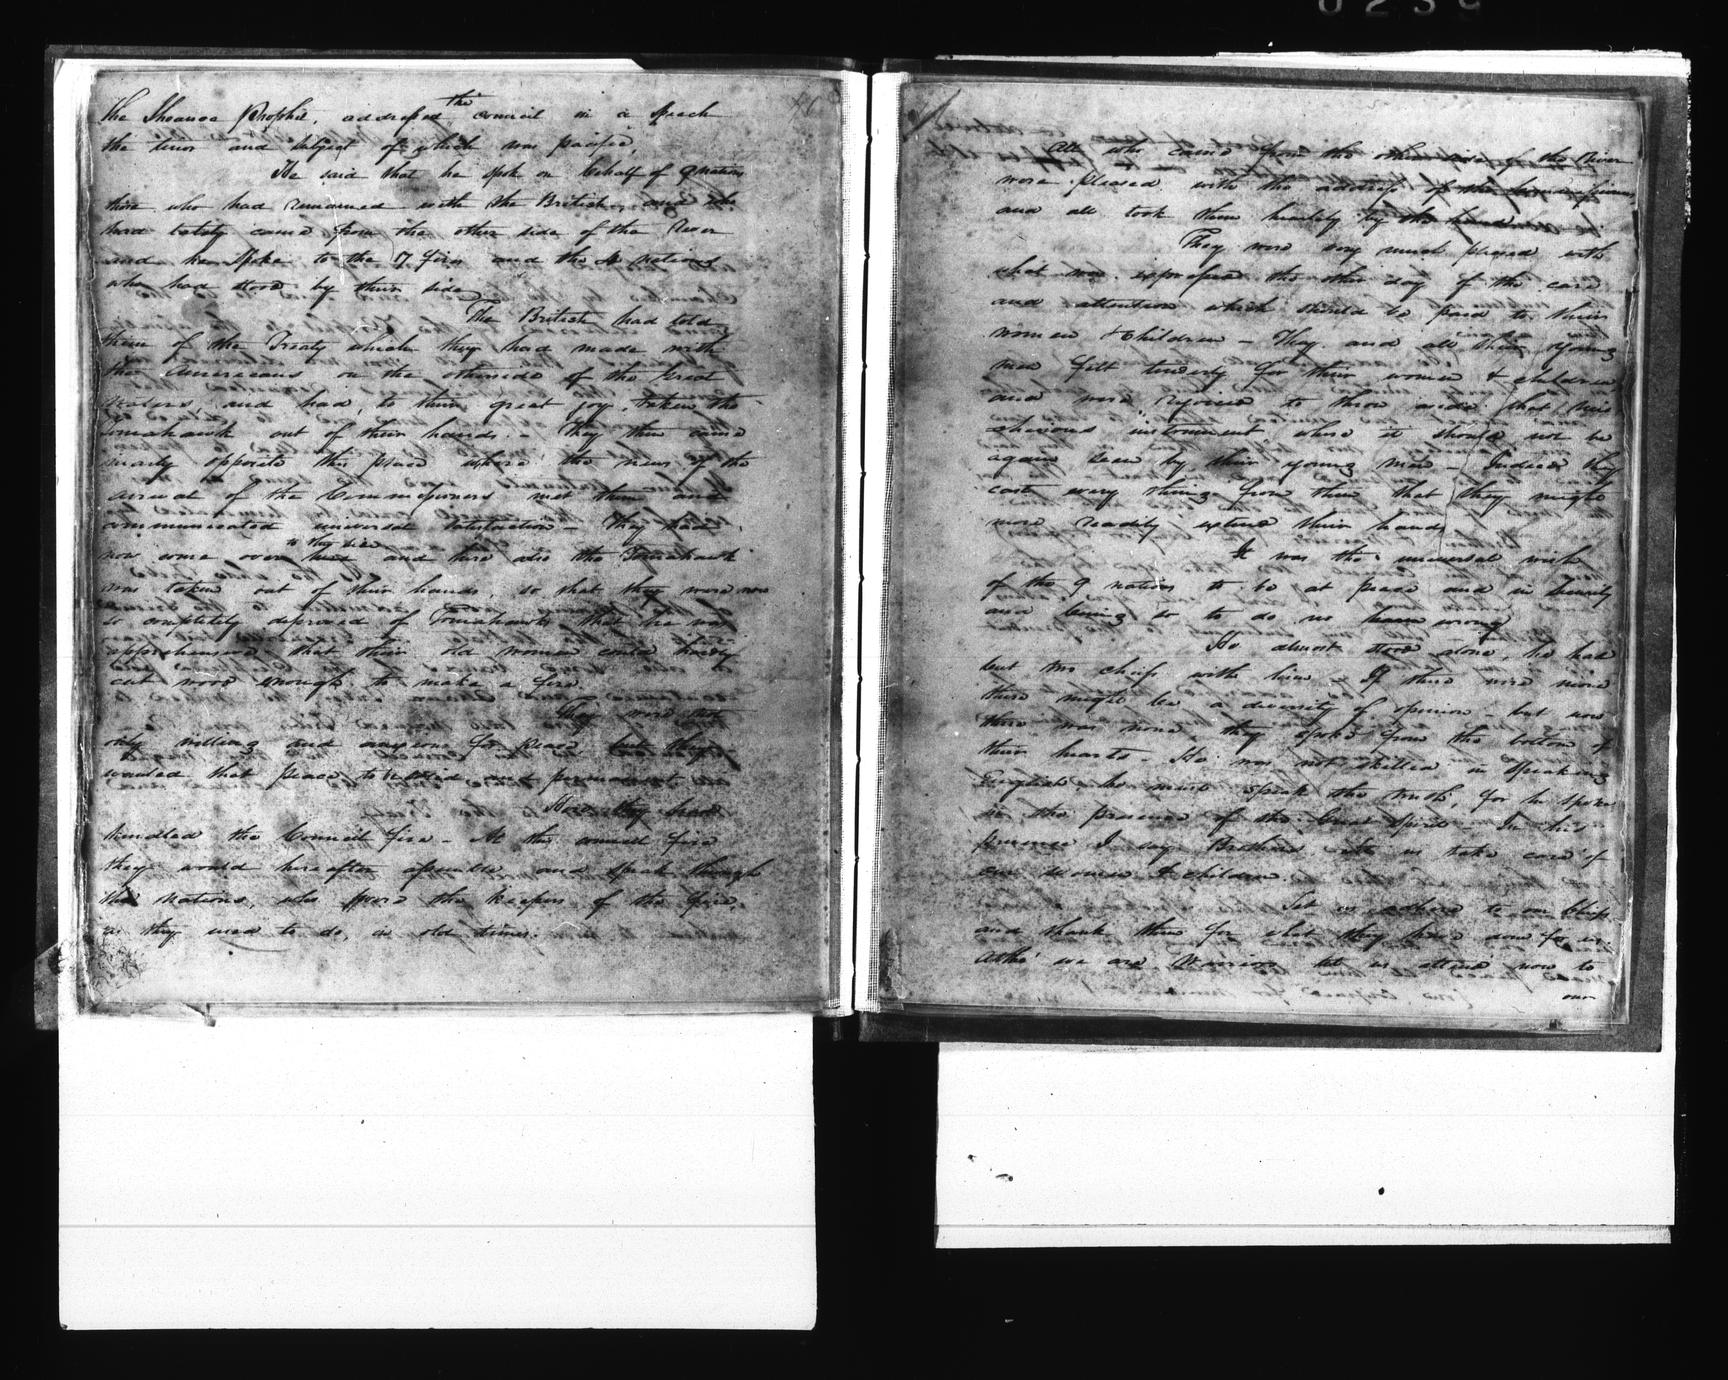 0239
the Shawnoe Prophet, addressed the council in a speech
the tenor and subject of which was pacific,
He said that he spoke on behalf of 9 nations
those who had remained with the British, and who
had lately come from the other side of the River
and he spoke to the 17 fires and the 4 nations
who had stood by their side
The British had told
them of the Treaty which they had made with
the Americans on the otherside of the Great
waters, and had, to their great joy, taken the
Tomahawk out of their hands. - They then came
nearly opposite this place where the news of the
arrival of the Commissioners met them and
communicated universal satisfaction - They have
now come over to this side and here also the Tomahawk
was taken out of their hands, so that they were now
so completely deprived of Tomahawks that he was
apprehensive that their old women could hardly
cut wood enough to make a fire.
They were not
only willing and anxious for peace but they
wanted that peace to be and permanent
Here they had
kindled the Council fire - At this council fire
they would hereafter assemble and speak through
the nations, who were the keepers of the fire,
as they used to do, in old times.
All who came from the other side of the River
were pleased with the address of the
and all took them heartily by the hand
They were very much pleased with
what was expressed the other day of the care
and attention which should be paid to their
women & children - They and all their young
men felt tenderly for their women & children
and were rejoiced to throw aside that mis-
chievous instrument, where it should not be
again seen by their young men - Indeed they
cast every thing from them that they might
more readily extend their hands
It was the universal wish
of the 9 nations to be at peace and in security
and being so to do no wrong
He almost stood alone, he had
but two chiefs with him - If there were more
there might be a diversity of opinion - but now
there was none, they spoke from the bottom of
their hearts - He was not skilled in speaking
English he must speak the truth, for he spoke
in the presence of the Great Spirit - In his
presence I say Brothers let us take care of
our women & children.
Let us adhere to our Chiefs
and thank them for what they have done for us.
Altho' we are Warriors let us attend now to
our